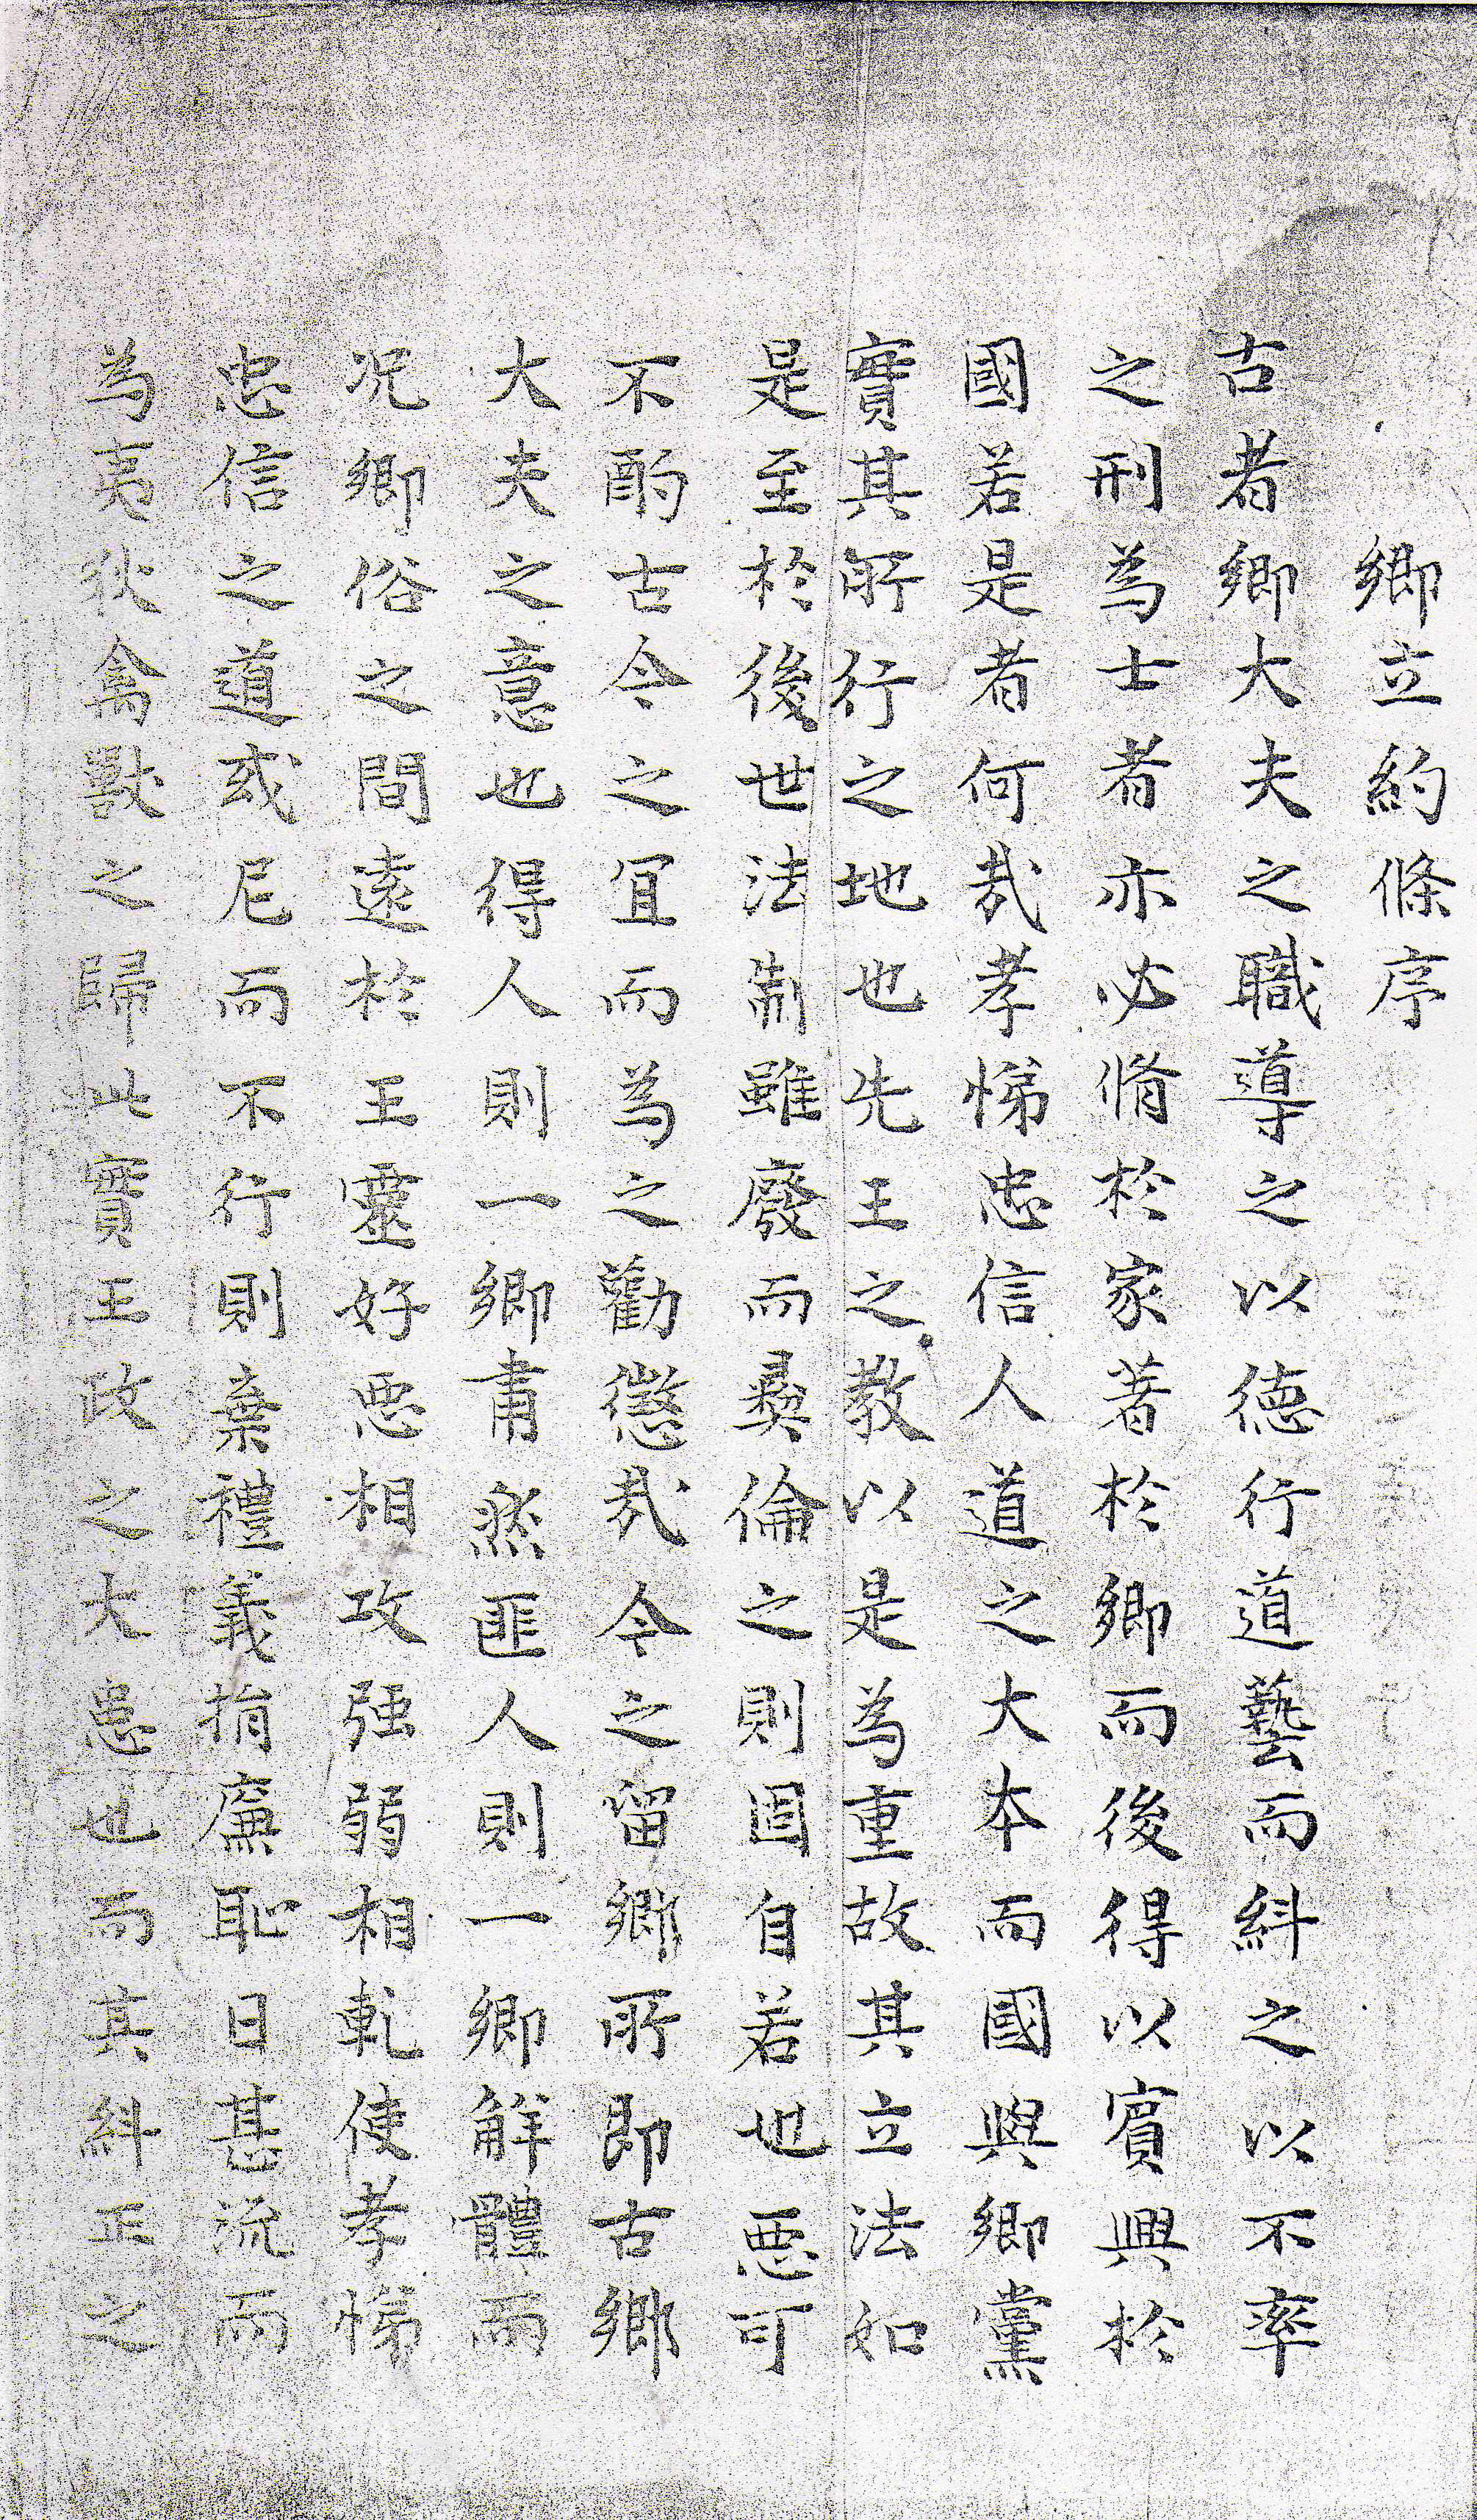 鄉立約條序
古者鄉大夫之職導之以德行道藝而糾之以不率
之刑為士者亦必脩於家著於鄉而後得以賓興於
國若是者何㢤孝悌忠信人道之大本而國與鄉黨
實其所行之地也先王之敎以是為重故其立法如
是至於後世法制雖廢而彛倫之則固自若也惡可
不酌古今之宜而為之勸懲㢤今之留鄉所即古鄉
大夫之意也得人則一鄉肅然匪人則一鄉解體而
况鄉俗之間遠於王靈好惡相攻强弱相軋使孝悌
忠信之道或尼而不行則棄禮義捐廉恥日甚流而
為夷狄禽獸之歸此實王政之大患也而其糾正之